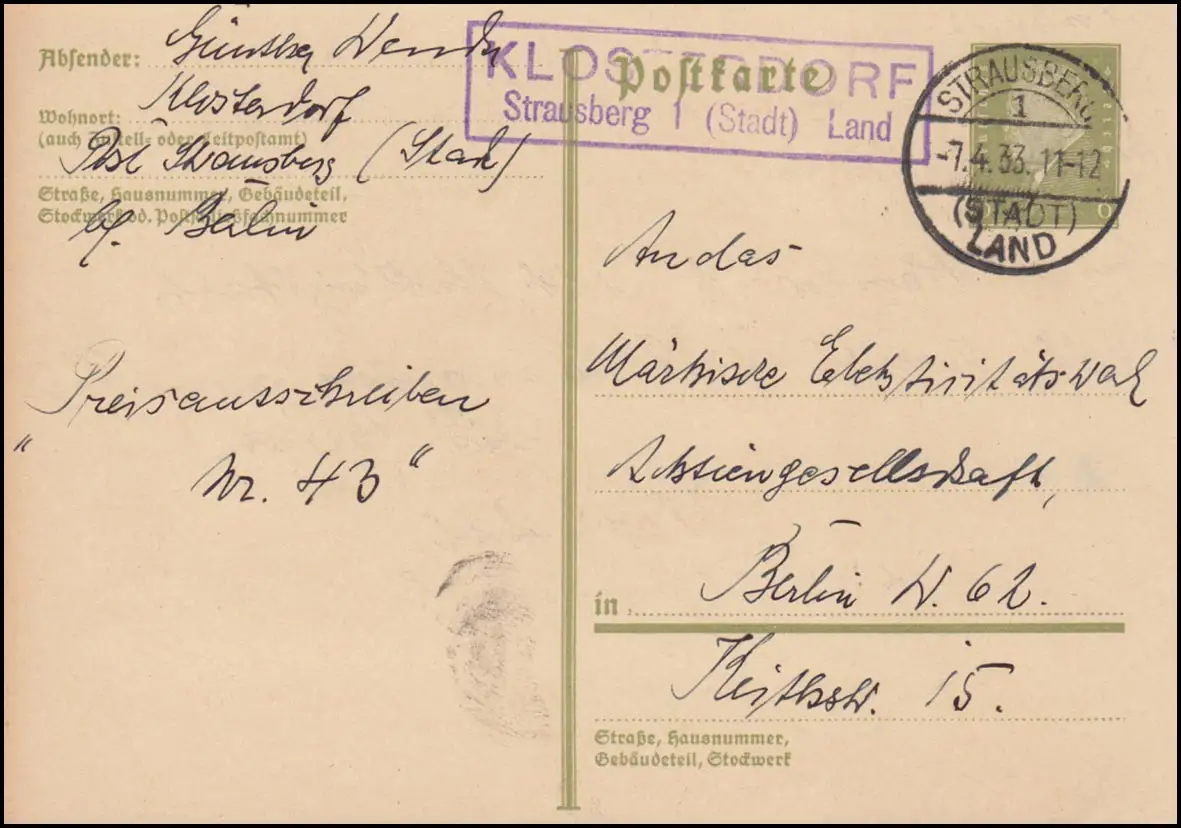 Absender: Günther Wendt
Klosterdorf
Wohnort:
(auch Zustell- oder Leitpostamt)
Post Strausberg (Stadt)
Straße, Hausnummer, Gebäudeteil,
Stockwerk od. Postschließfachnummer
bf. Berlin
Postkarte
KLOSTERDORF
Strausberg 1 (Stadt) Land
STRAUSBERG
1
-7.4.33. 11-12
(STADT)
LAND
6
Preisausschreiben
" Nr. 43 "
An das
Märkische Elektrizitätswerk
Aktiengesellschaft,
in Berlin W. 62.
Keithstr. 15.
Straße, Hausnummer,
Gebäudeteil, Stockwerk